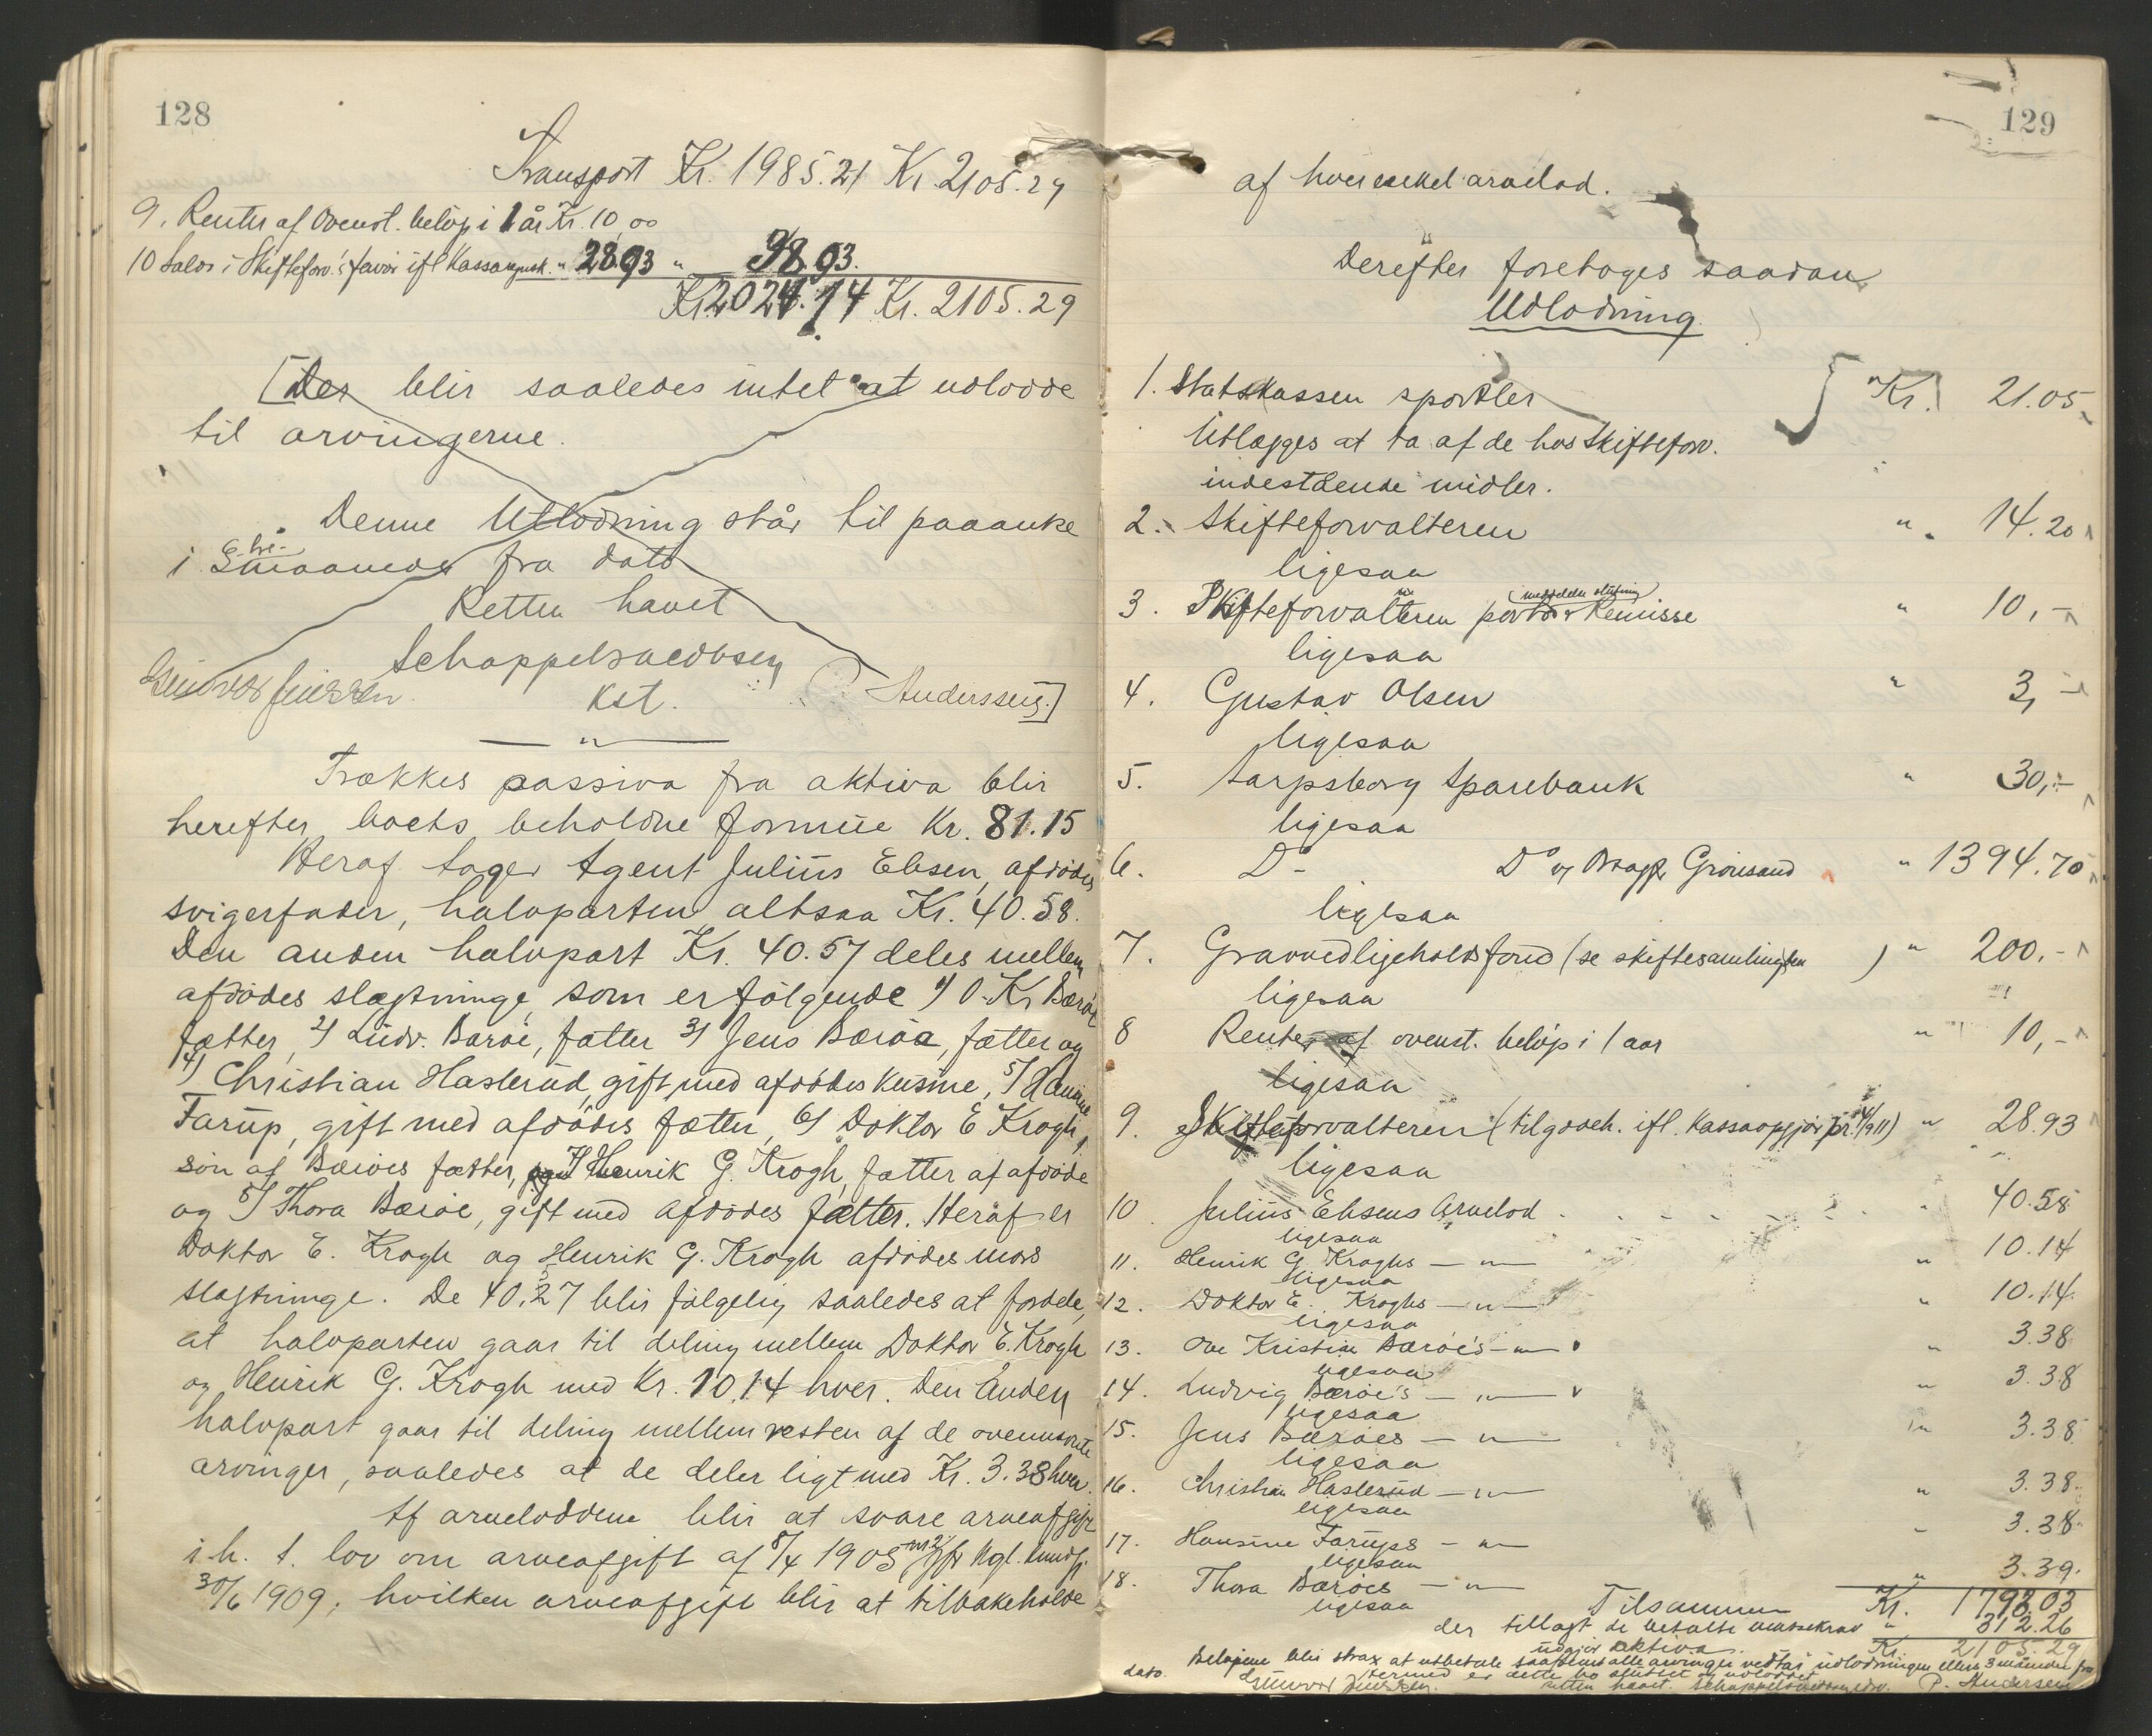 128
Transport Kr. 1985.21 Kr. 2105.29
9. Renter af Ovenst. beløp i 1 år Kr. 10,00
10 Saldo i Skifteforv.'s favør ifl Kassaregnsk. " 28.93 " 38.93.
Kr. 2024.14 Kr. 2105.29
[Der blir saaledes intet at udlodde
til arvingerne.
Denne Utlodning står til paaanke
i maaneder fra dato
Retten hævet
Schappelsacobsen
kst.
Anderssen.]
"
Trækkes passiva fra aktiva blir
herefter boets beholdne formue Kr. 81.15
Heraf tager Agent Julius Ebsen, afdødes
svigerfader, halvparten altsaa Kr. 40.58.
Den anden halvpart Kr. 40.57 deles mellem
afdødes slægtninge, som er følgende 1) O. Kr Bærøe
fætter, 2) Ludv. Bærøe, fætter 3) Jens Bærøe, fætter og
4) Christian Haslerud, gift med afdødes kusine, 5) Hansine
Farup, gift med afdødes fætter, 6) Doktor E Krogh,
søn af Bærøes fætter, 7) Henrik G. Krogh, fætter af afdøde
og 8) Thora Bærøe, gift med afdødes fætter. Heraf er
Doktor E. Krogh og Henrik G. Krogh afdødes mors
slægtninge. De 40.57 blir følgelig saaledes at fordele,
at halvparten gaar til deling mellem Doktor E. Krogh
og Henrik G. Krogh med Kr. 10.14 hver. Den anden
halvpart gaar til deling mellem resten af de ovennævnte
arvinger, saaledes at de deler ligt med Kr. 3.38 hver.
Af arveloddene blir at svare arveafgift
i h. t. lov om arveafgift af 8/4 1905 nr 2, jfr kgl. kundg.
30/6 1909, hvilken arveafgift blir at tilbakeholde
129
af hver enkel arvelod.
Derefter foretages saadan
Udlodning
1. Statskassen sportler " Kr. 21.05
Utlægges at ta af de hos Skifteforv.
indestående midler.
2. Skifteforvalteren " 14.20
ligesaa
3. Skifteforvalteren porto & Remisse " 10,-
ligesaa
4. Gustav Olsen " 3,-
ligesaa
5. Sarpsborg Sparebank " 30,-
ligesaa
6. Do - Do og Grønsand " 1394.70
ligesaa
7. Gravvedligeholdsfond (se skiftesamlingen ) " 200,-
ligesaa
8 Renter af ovenst. beløp i 1 aar " 10,-
ligesaa
9. Skifteforvalteren (tilgodeh. ifl. Kassaopgjør pr. 4/9 11) " 28.93
ligesaa
10. Julius Ebsens Arvelod . . . " 40.58
ligesaa
11. Henrik G Kroghs — " — " 10.14
ligesaa
12. Doktor E. Kroghs — " — " 10.14.
ligesaa
13. Ove Kristian Bærøe's — " — " 3.38
ligesaa
14. Ludvig Bærøe's — " — " 3.38
ligesaa
15. Jens Bærøes — " — " 3.38
ligesaa
16. Christian Haslerud — " — " 3.38.
ligesaa
17. Hansine Farups — " — " 3.38
ligesaa
18. Thora Bærøes — " — " 3.39.
ligesaa
Tilsammen Kr. 1793.03
der tillagt de betalte massekrav " 312.26
udgjør aktiva Kr. 2105.29
Beløpene blir strax at utbetale saafremt alle arvinger vedtar udlodningen ellers 3 måneder fra
dato. Hermed er dette bo sluttet og udloddet
Retten hævet. P. Andersen